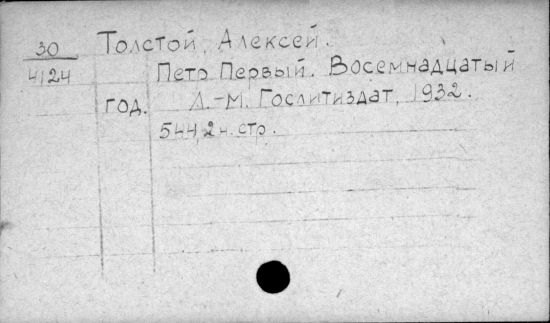 30 Толстой, Алексей.
4124 Петр Первый. Восемнадцатый
год. Л.-М. Гослитиздат, 1932.
544, 2 н. стр.